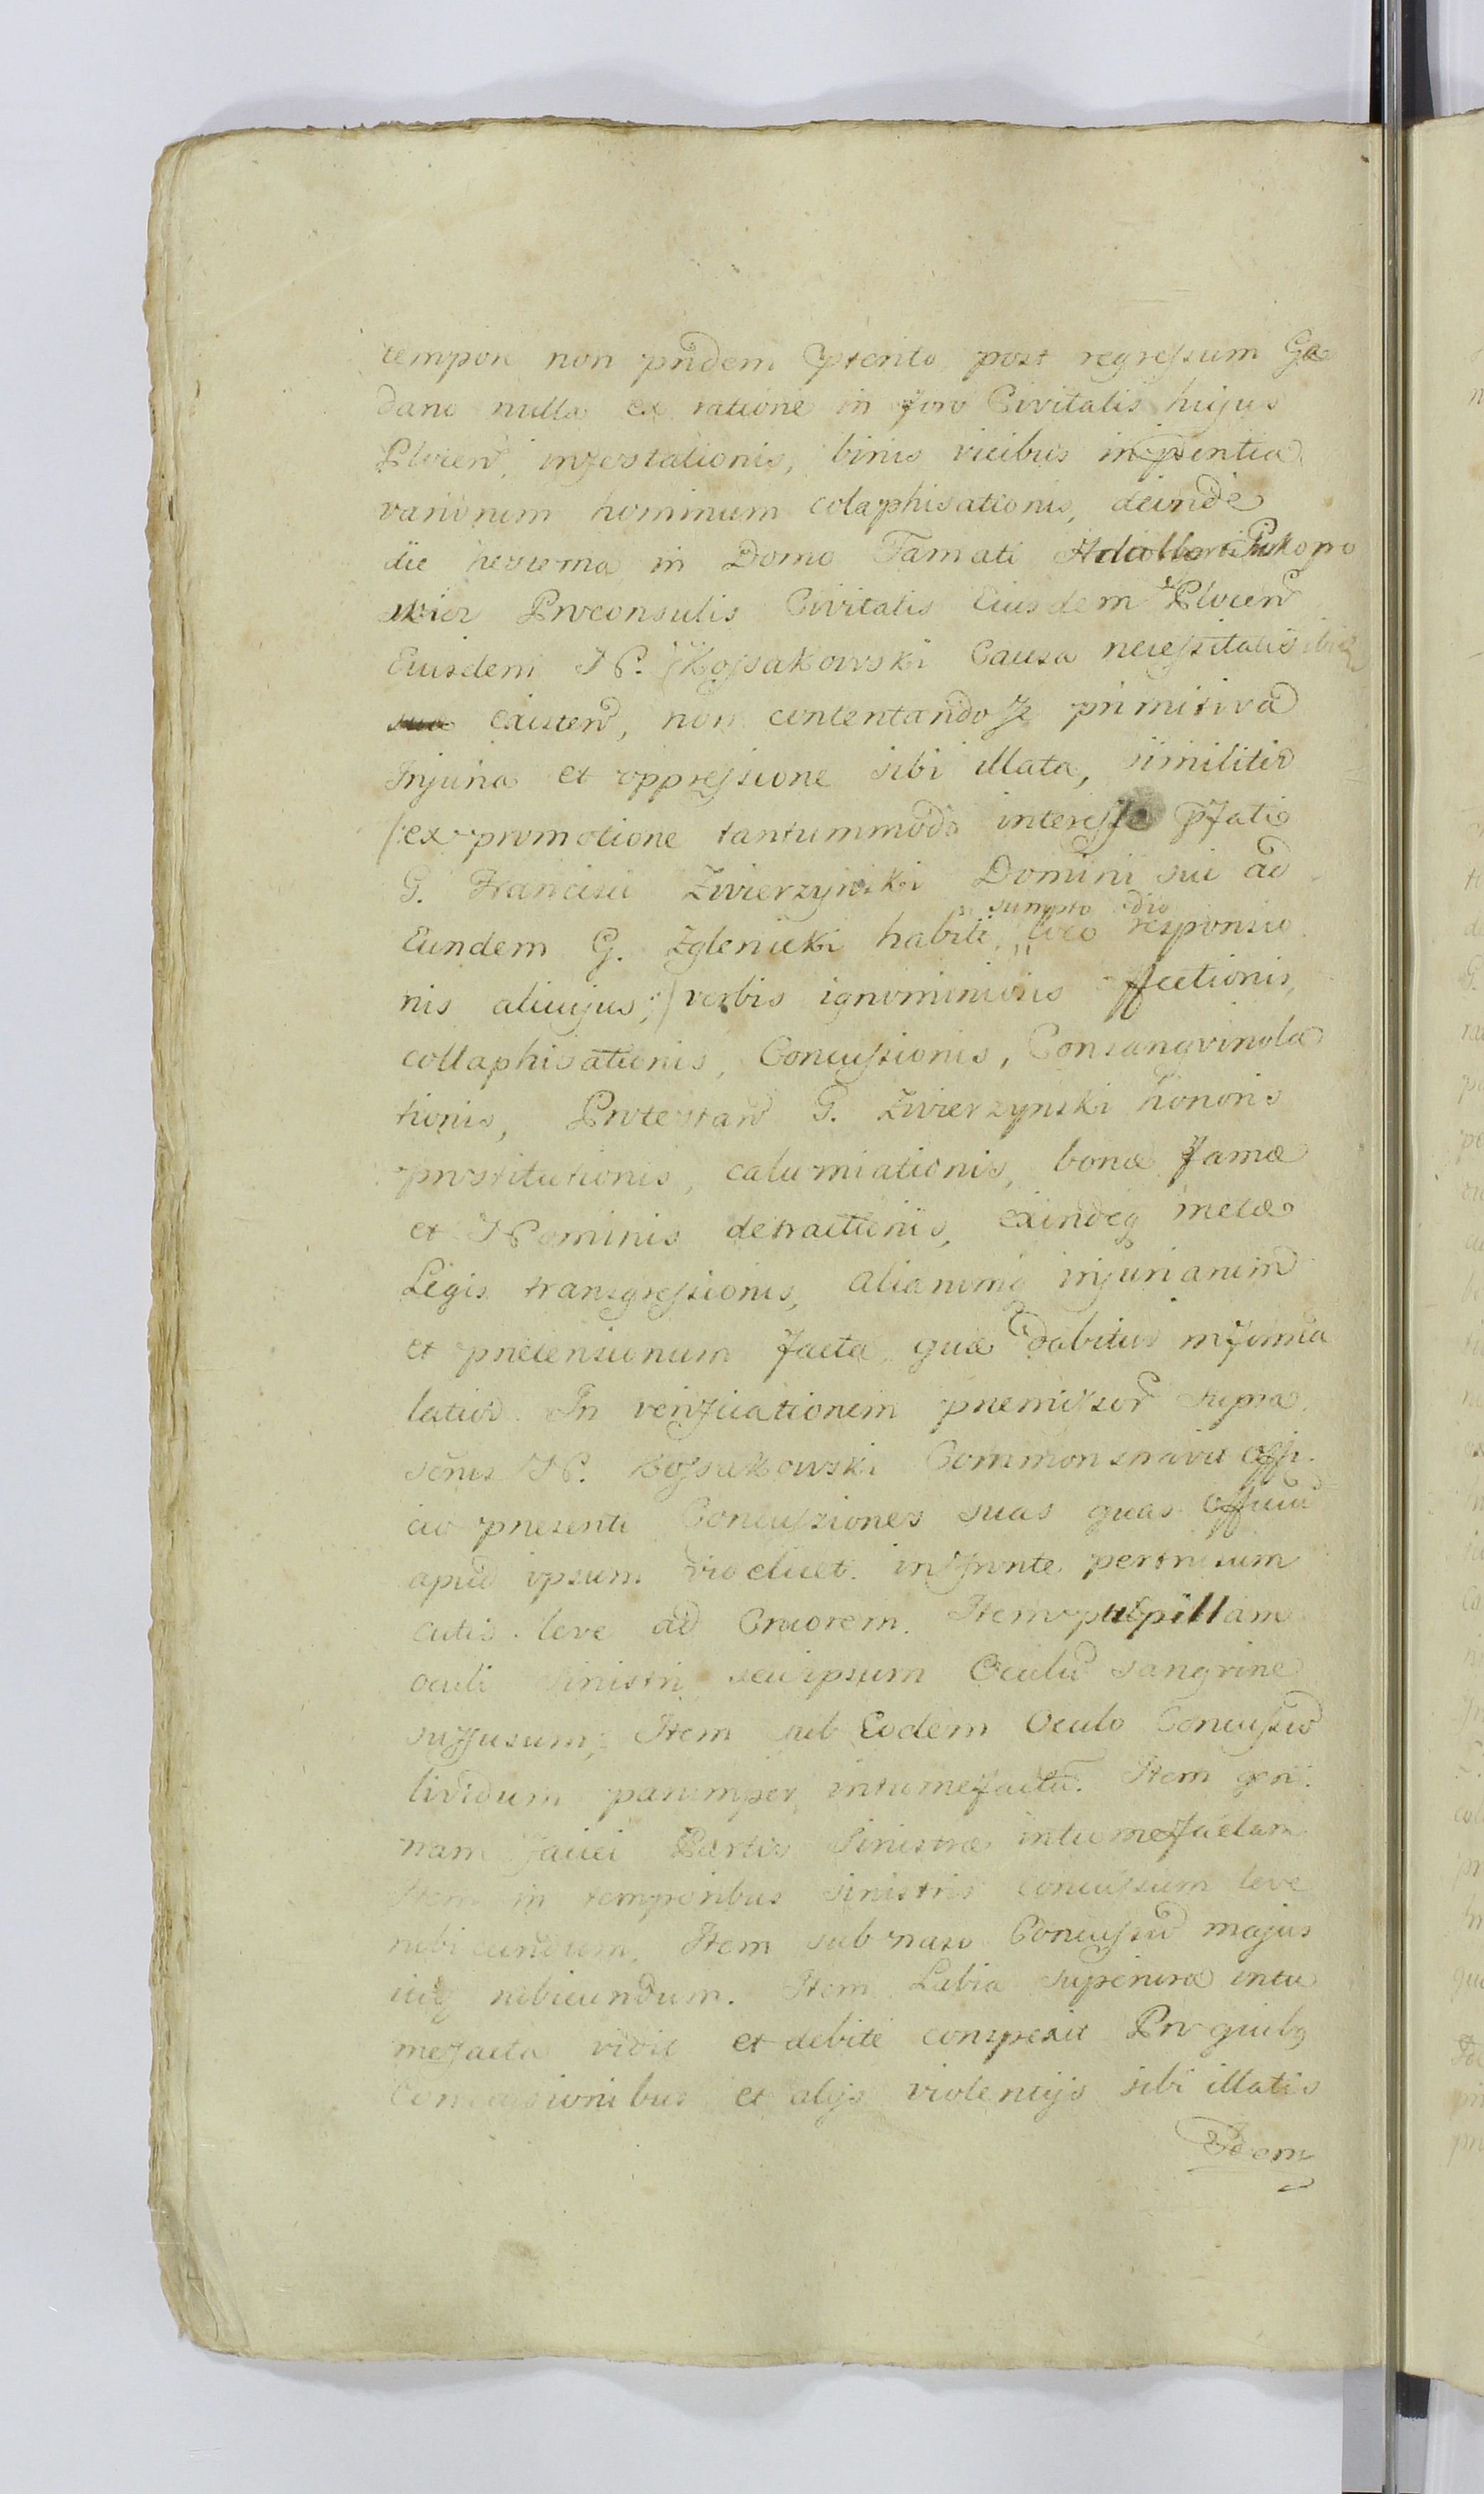 tempore non pridem pterito post regressum Ge
dano nulla ex ratione in foro Civitatis hujus
Plocen, infestationis, binis vicibus in pntia
variorum hominum colaphisationis, deinde
die hesterna in Domo Famati Adalberti Prokopo
wicz Proconsulis Civitatis Eiusdem Plocen
Eiusdem N. Kossakowski Causa necessitatis ibid
existen, non contentando se primitiva
Injuria et oppressione sibi illata, similiter
/:ex promotione tantummodo interesse pfati
G. Francisci Zwierzynski Domini sui ad
sumpto odio
Eundem G. Zglenicki habiti, loco responsio
nis alicujus:/ verbis ignominiosis affectionis,
collaphisationis, Concussionis, Consangvinola
tionis, Protestan G. Zwierzynski honoris
prostitutionis, calumiationis, bonæ famæ
et Nominis detractionis, exindeq metæ
Legis transgressionis, aliarumq injuriarum
et prætensionum facta, quæ dabitur in forma
latior. In verificationem præmissor supra
scrius N. Kossakowski Commonstravit Offi
cio præsenti Concussiones suas quas Officiu
apud ipsum videlicet in fronte pertritum
cutis leve ad Cruorem. Item pulpillam
oculi sinistri seu ipsum Oculu sangvine
suffusum, Item sub Eodem Oculo Concussu
lividum parumper intumefactu. Item ge
nam faciei Partis Sinistræ intumefactam
Item in temporibus sinistris concussum leve
rubicundum, Item sub naso Concussu majus
itiq rubicundum. Item Labia superiora intu
mefacta vidit et debite conspexit Pro quibq
Concussionibus et alijs violentijs sibi illatis
Idem